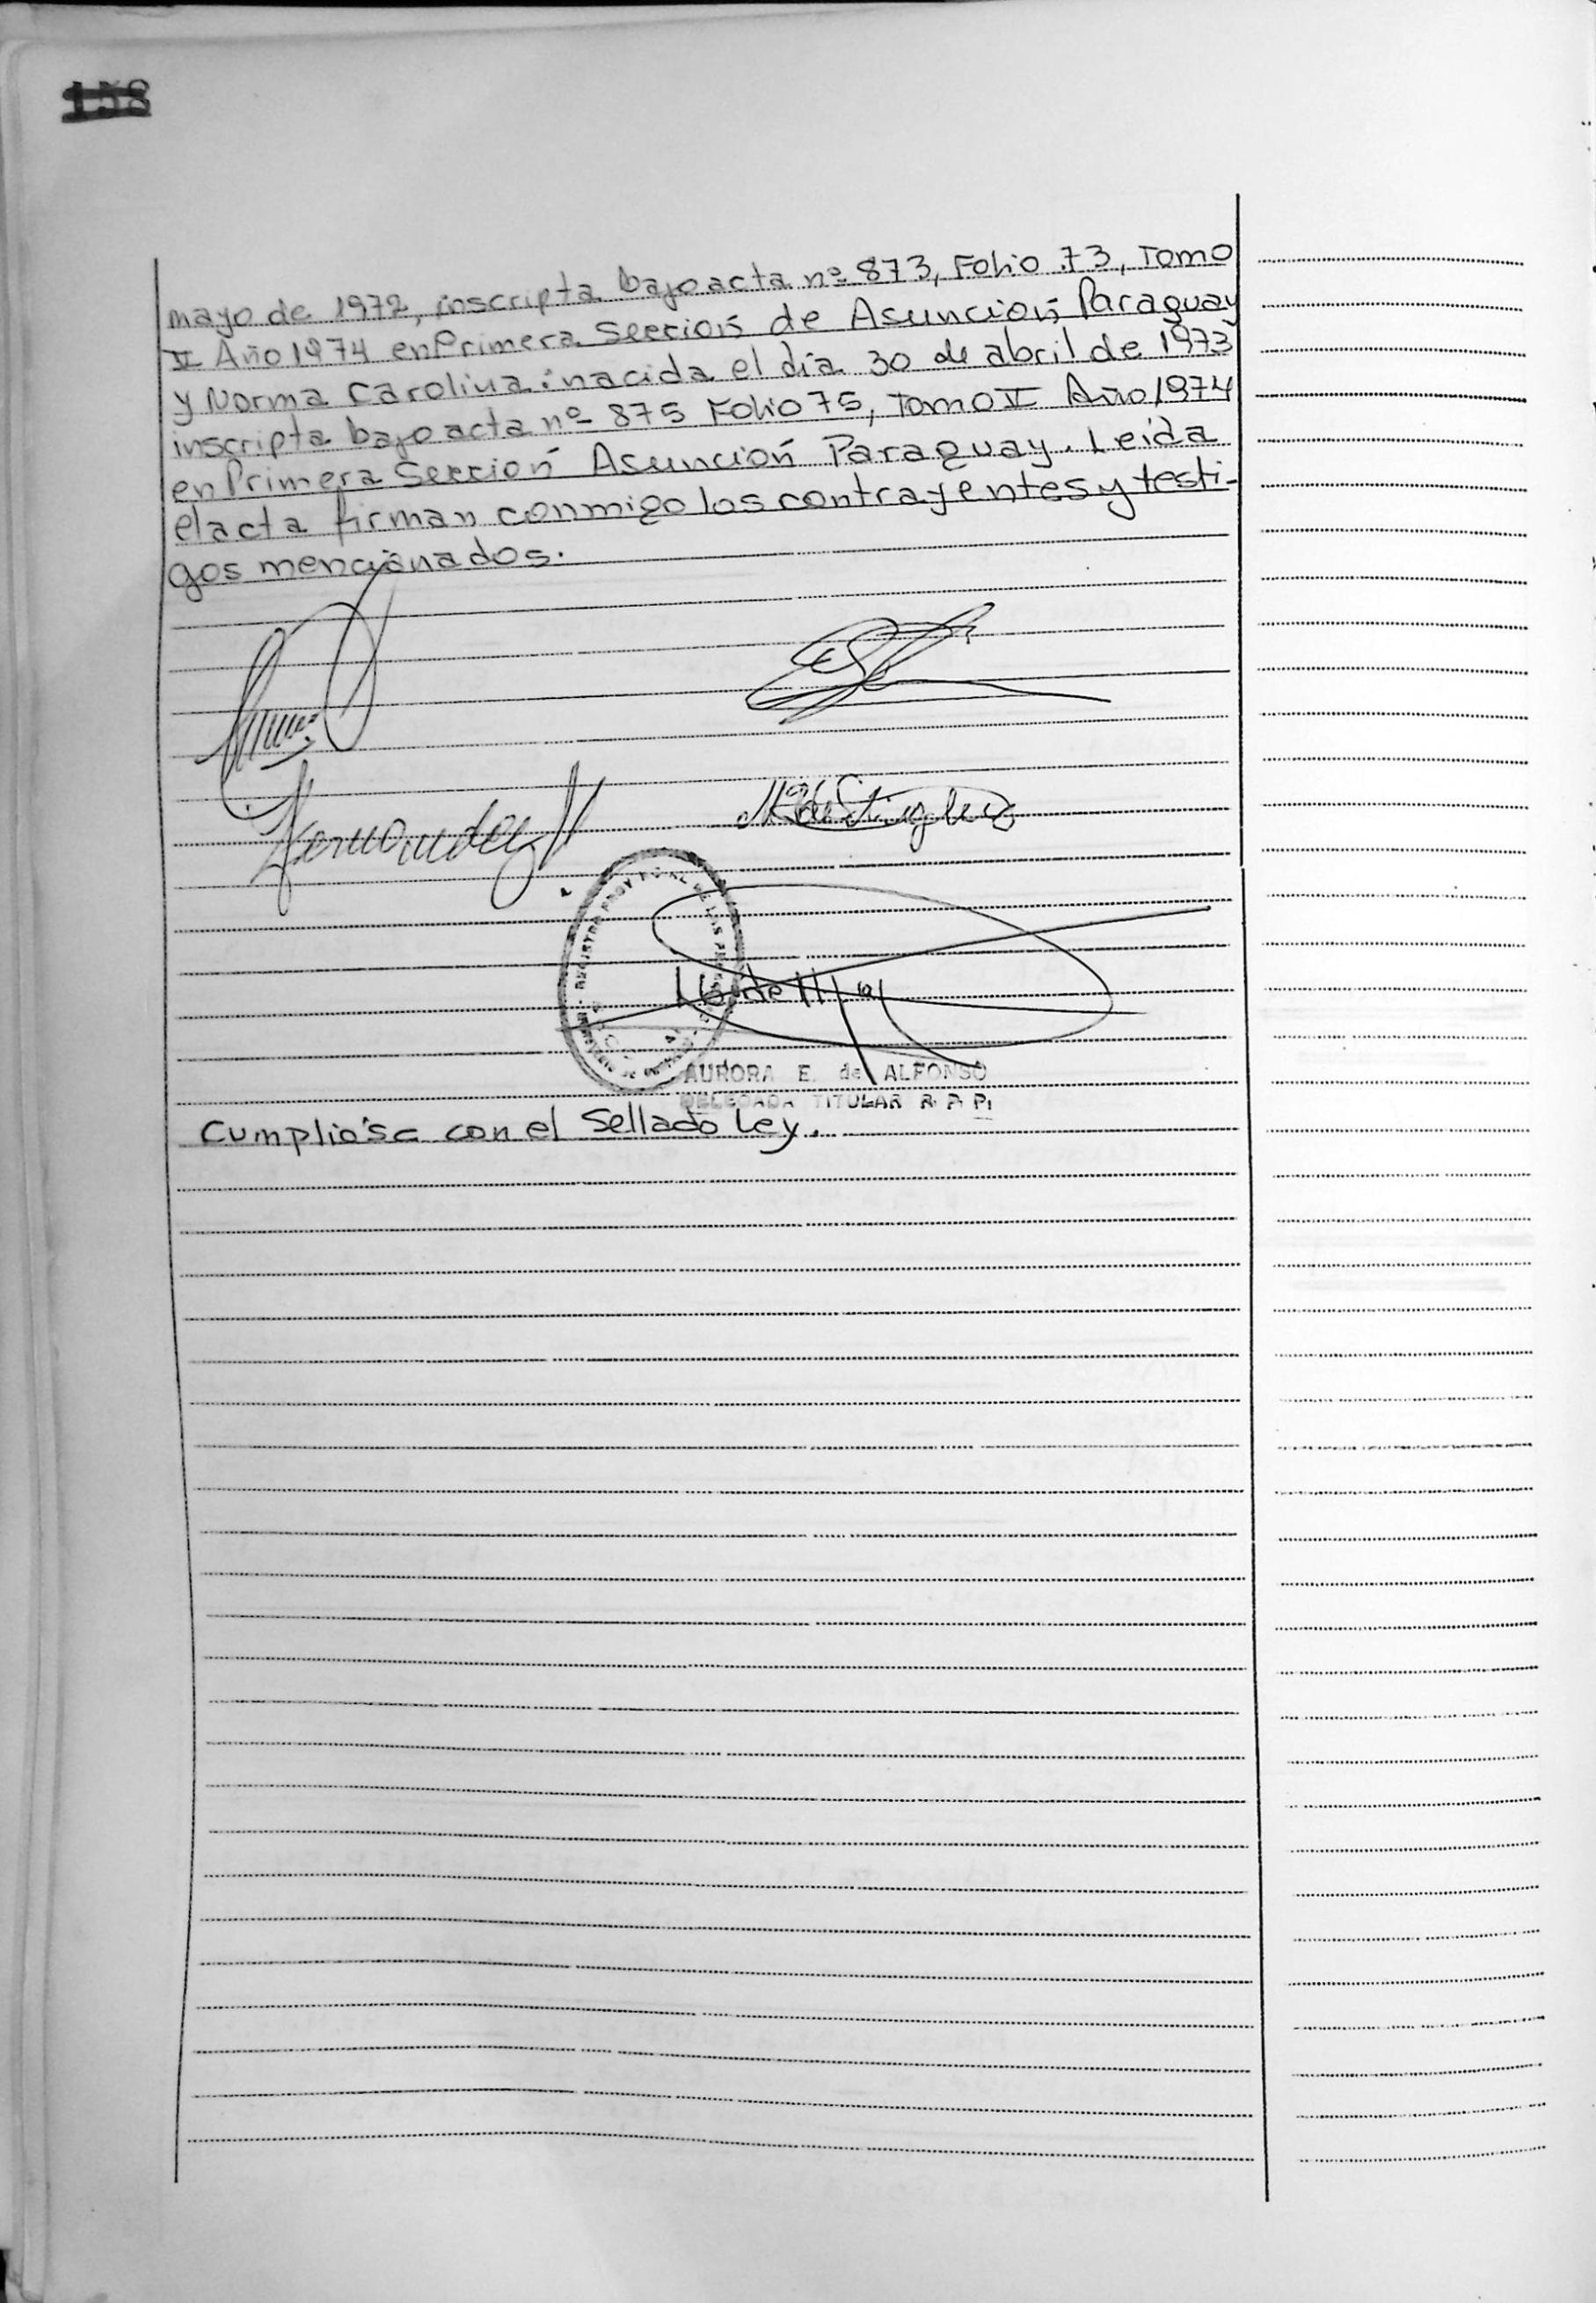 158
mayo de 1972, inscripta bajo acta nº 873, Folio 73, Tomo
II Año 1974 en Primera Sección de Asunción Paraguay
y Norma Carolina: nacida el día 30 de abril de 1973
inscripta bajo acta nº 875 Folio 75, Tomo II Año 1974
en Primera Sección Asunción Paraguay. Leida
el acta firman conmigo los contrayentes y testi-
gos mencionados.
Hernandez
AURORA E. de ALFONSO
DELEGADA TITULAR R. P. P.
Cumplióse con el Sellado Ley.